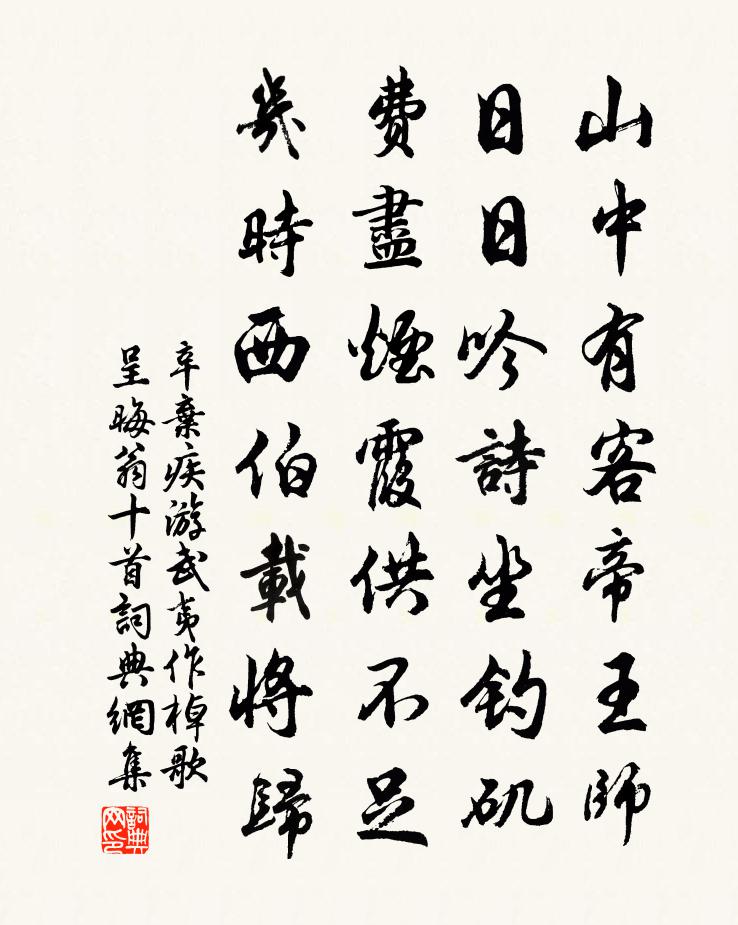 山中有客帝王師
日日吟詩坐釣矶
費盡煙霞供不足
幾時西伯載將歸
辛棄疾游武夷作棹歌
呈晦翁十首詞典網集
詞典
网印